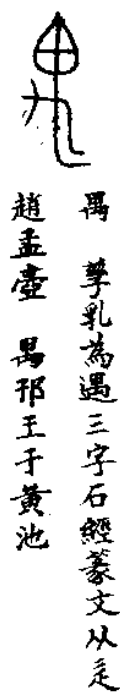 禺　孳乳為遇三字石經篆文从辵
趙孟壺　禺邗王于黃池